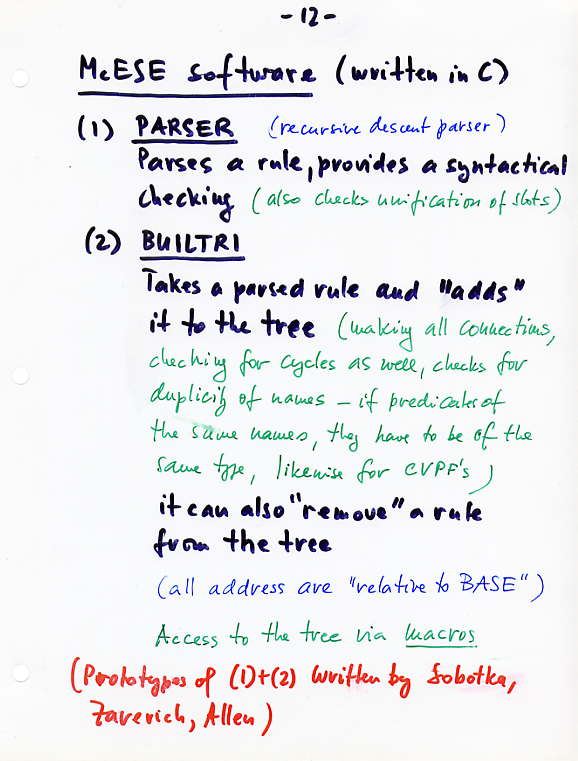 -12-
McESE software (written in C)
(1) PARSER (recursive descent parser)
Parses a rule, provides a syntactical
checking (also checks unification of slots)
(2) BUILTRI
Takes a parsed rule and "adds"
it to the tree (making all connections,
checking for cycles as well, checks for
duplicity of names – if predicates of
the same names, they have to be of the
same type, likewise for CVPF's)
it can also "remove" a rule
from the tree
(all address are "relative to BASE")
Access to the tree via macros
(Prototypes of (1)+(2) written by Sobotka,
Zarerich, Allen)